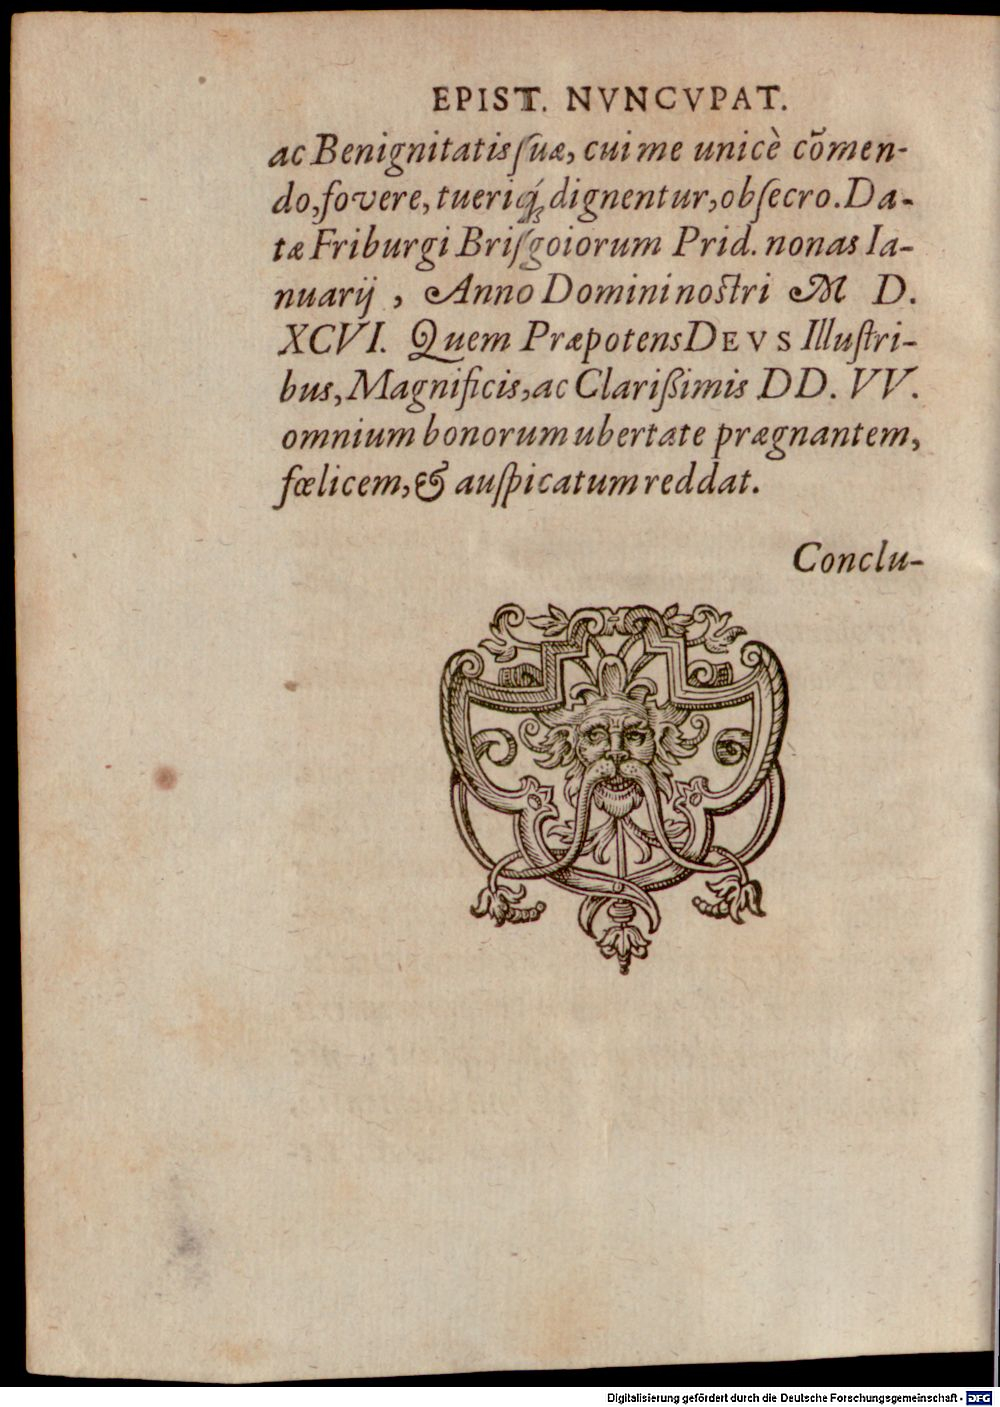 EPIST. NVNCVPAT.
ac Benignitatis ſuæ, cui me unicè cõmen-
do, fovere, tueriq́; dignentur, obſecro. Da-
tæ Friburgi Briſgoiorum Prid. nonas Ia-
nuarij, Anno Domini noſtri M D.
XCVI. Quem Præpotens DEVS Illuſtri-
bus, Magnificis, ac Clarißimis DD. VV.
omnium bonorum ubertate prægnantem,
fœlicem, & auſpicatum reddat.
Conclu-
Digitalisierung gefördert durch die Deutsche Forschungsgemeinschaft - DFG